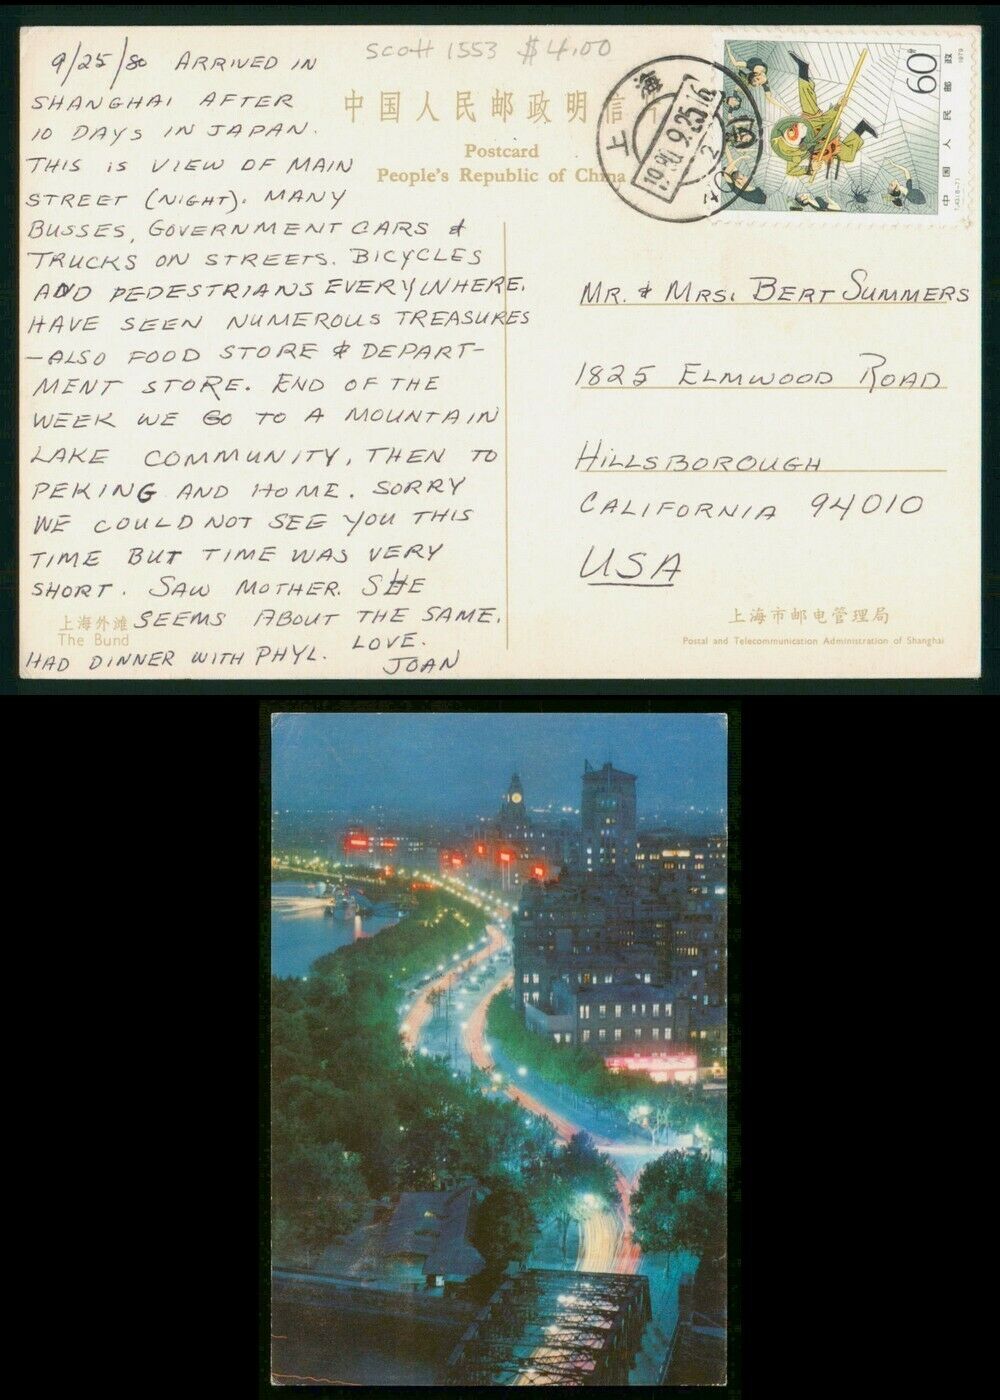 Scott 1553 $4.00
9/25/80 ARRIVED IN
SHANGHAI AFTER
10 DAYS IN JAPAN.
THIS IS VIEW OF MAIN
STREET (NIGHT). MANY
BUSSES, GOVERNMENT CARS &
TRUCKS ON STREETS. BICYCLES
AND PEDESTRIANS EVERYWHERE.
HAVE SEEN NUMEROUS TREASURES
—ALSO FOOD STORE & DEPART-
MENT STORE. END OF THE
WEEK WE GO TO A MOUNTAIN
LAKE COMMUNITY, THEN TO
PEKING AND HOME. SORRY
WE COULD NOT SEE YOU THIS
TIME BUT TIME WAS VERY
SHORT. SAW MOTHER. SHE
SEEMS ABOUT THE SAME.
HAD DINNER WITH PHYL. LOVE.
JOAN
上海外滩
The Bund
中国人民邮政明信
Postcard
People's Republic of China
上海
60
中国人民邮政
1979
MR. & MRS. BERT SUMMERS
1825 ELMWOOD ROAD
HILLSBOROUGH
CALIFORNIA 94010
USA
上海市邮电管理局
Postal and Telecommunication Administration of Shanghai